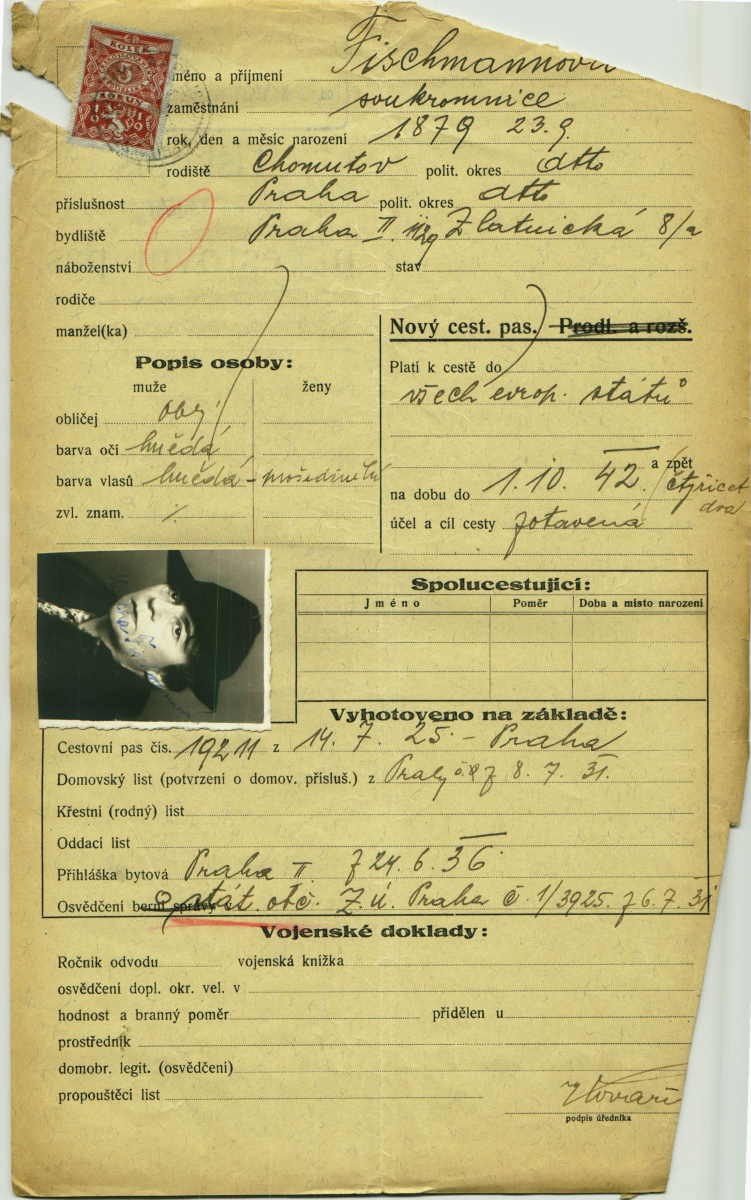 KOLEK
5
KORUN
jméno a příjmení Fischmannová
zaměstnání soukromnice
rok, den a měsíc narození 1879 23.9.
rodiště Chomutov polit. okres dtto
příslušnost Praha polit. okres dtto
bydliště Praha II. Zlatnická 8/a
náboženství stav
rodiče
manžel(ka)
Nový cest. pas. Prodl. a rozš.
Popis osoby:
muže ženy
obličej obl.
barva očí hnědá
barva vlasů hnědá - prošedivělá
zvl. znam. %
Platí k cestě do
všech evrop. států
a zpět
na dobu do 1. 10. 42. (čtyřicet
dva
účel a cíl cesty zotavená
Spolucestující:
Jméno Poměr Doba a místo narození
Vyhotoveno na základě:
Cestovní pas čís. 19211 z 14. 7. 25. - Praha
Domovský list (potvrzení o domov. přísluš.) z Prahy z 8. 7. 31.
Křestní (rodný) list
Oddací list
Přihláška bytová Praha II. z 24. 6. 36.
Osvědčení berní správy o stát. obč. Z.ú. Praha č. 1/3925. z 6. 7. 31
Vojenské doklady:
Ročník odvodu vojenská knížka
osvědčení dopl. okr. vel. v
hodnost a branný poměr přidělen u
prostředník
domobr. legit. (osvědčení)
propouštěcí list
podpis úředníka